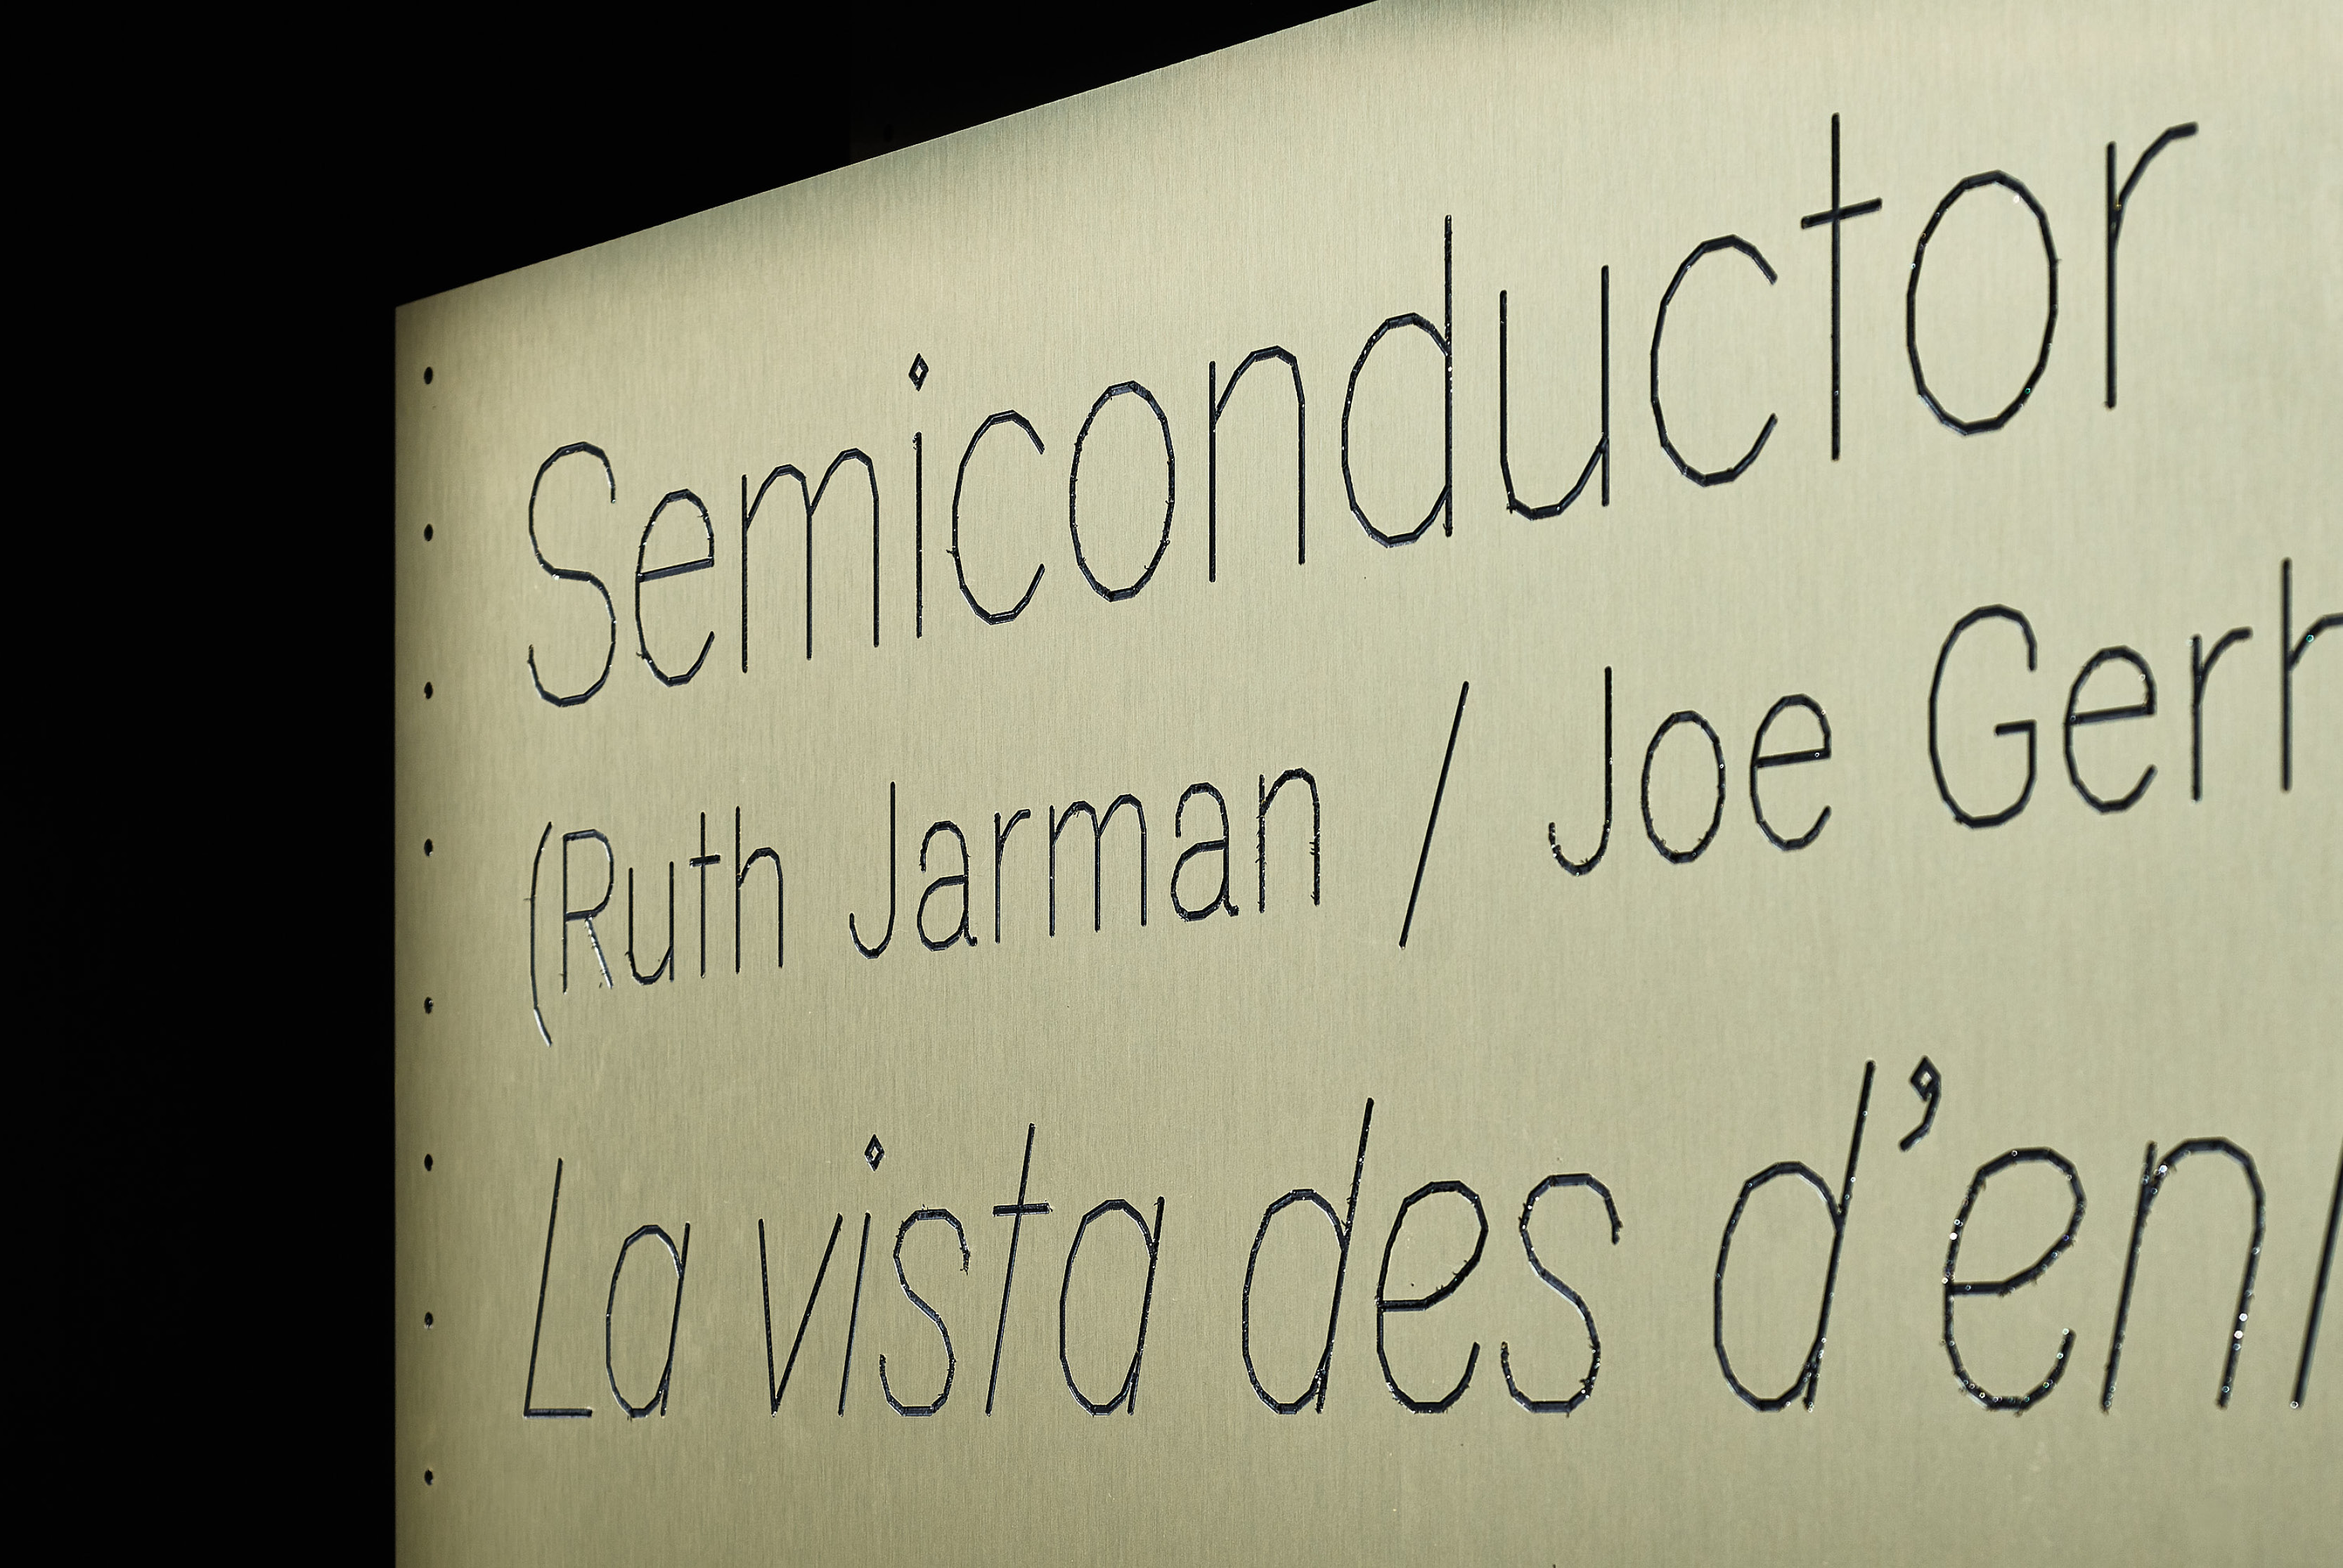 Semiconductor
(Ruth Jarman / Joe Gerh
La vista des d’enl